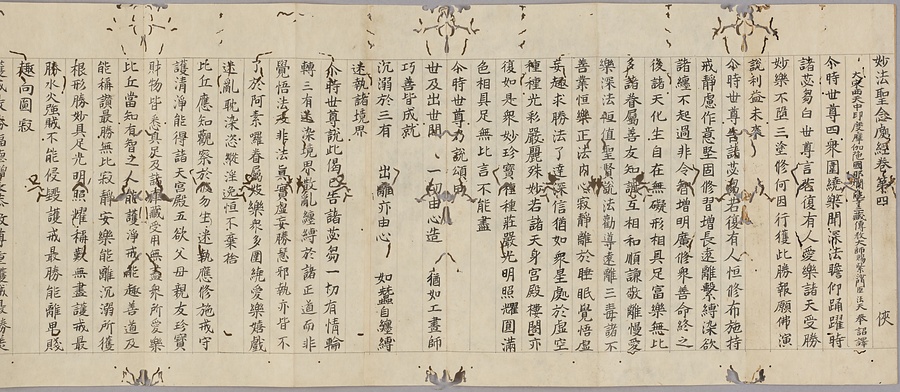 妙法聖念處經卷第四　俠
大宋西天中印度摩伽陀國那爛陀寺三藏傳教大師賜紫沙門臣法天奉 詔譯
尒時世尊四衆圍繞樂聞深法瞻仰踊躍時
諸苾芻白世尊言若復有人愛樂諸天受勝
妙樂不墮三塗修何因行獲此勝報願佛演
說利益未來
尒時世尊告諸苾芻若復有人恒修布施持
戒靜慮作意堅固修習增長遠離繫縛染欲
諸纏不起過非令智增明廣修衆善命終之
後諸天化生自在無礙形相具足富樂無比
多諸眷屬善友知識互相和順謙敬離慢愛
樂深法恒值聖賢說法勸導遠離三毒諂
善業恒修樂正法內心寂靜離於睡眠覺悟虛
妄趣求勝法了達深信猶如衆星處於虛空
種種光彩嚴麗殊妙若諸天身宮殿樓閣亦
復如是衆妙珍寶種種莊嚴光明照耀圓滿
色相具足無比言不能盡
尒時世尊乃說頌曰
世及出世間　一切由心造　猶如工畫師
巧善皆成就
沉溺於三有　出離亦由心　如蠶自纏縛
迷執諸境界
尒時世尊說此偈已告諸苾芻一切有情輪
轉三有迷染境界散亂纏縛於諸正道而非
覺悟法非法真實虛妄勝慧邪執亦皆不
於阿素囉眷屬欲樂衆多圍繞愛樂嬉戲
迷亂耽染恣縱淫逸恒不棄捨
比丘應知觀察於勿生迷執應修施戒守
護清淨能得諸天宮殿五欲父母親友珍寶
財物皆悉真足及諸庫藏受用無盡衆所愛樂
比丘當知有智之人能護淨戒能趣善道及
能稱讚最勝無比寂靜安樂能離沉溺所獲
根形勝妙具足光明照耀稱歎無盡護戒最
勝水火盜賊不能侵毀護戒最勝能離卑賤
趣向圓寂